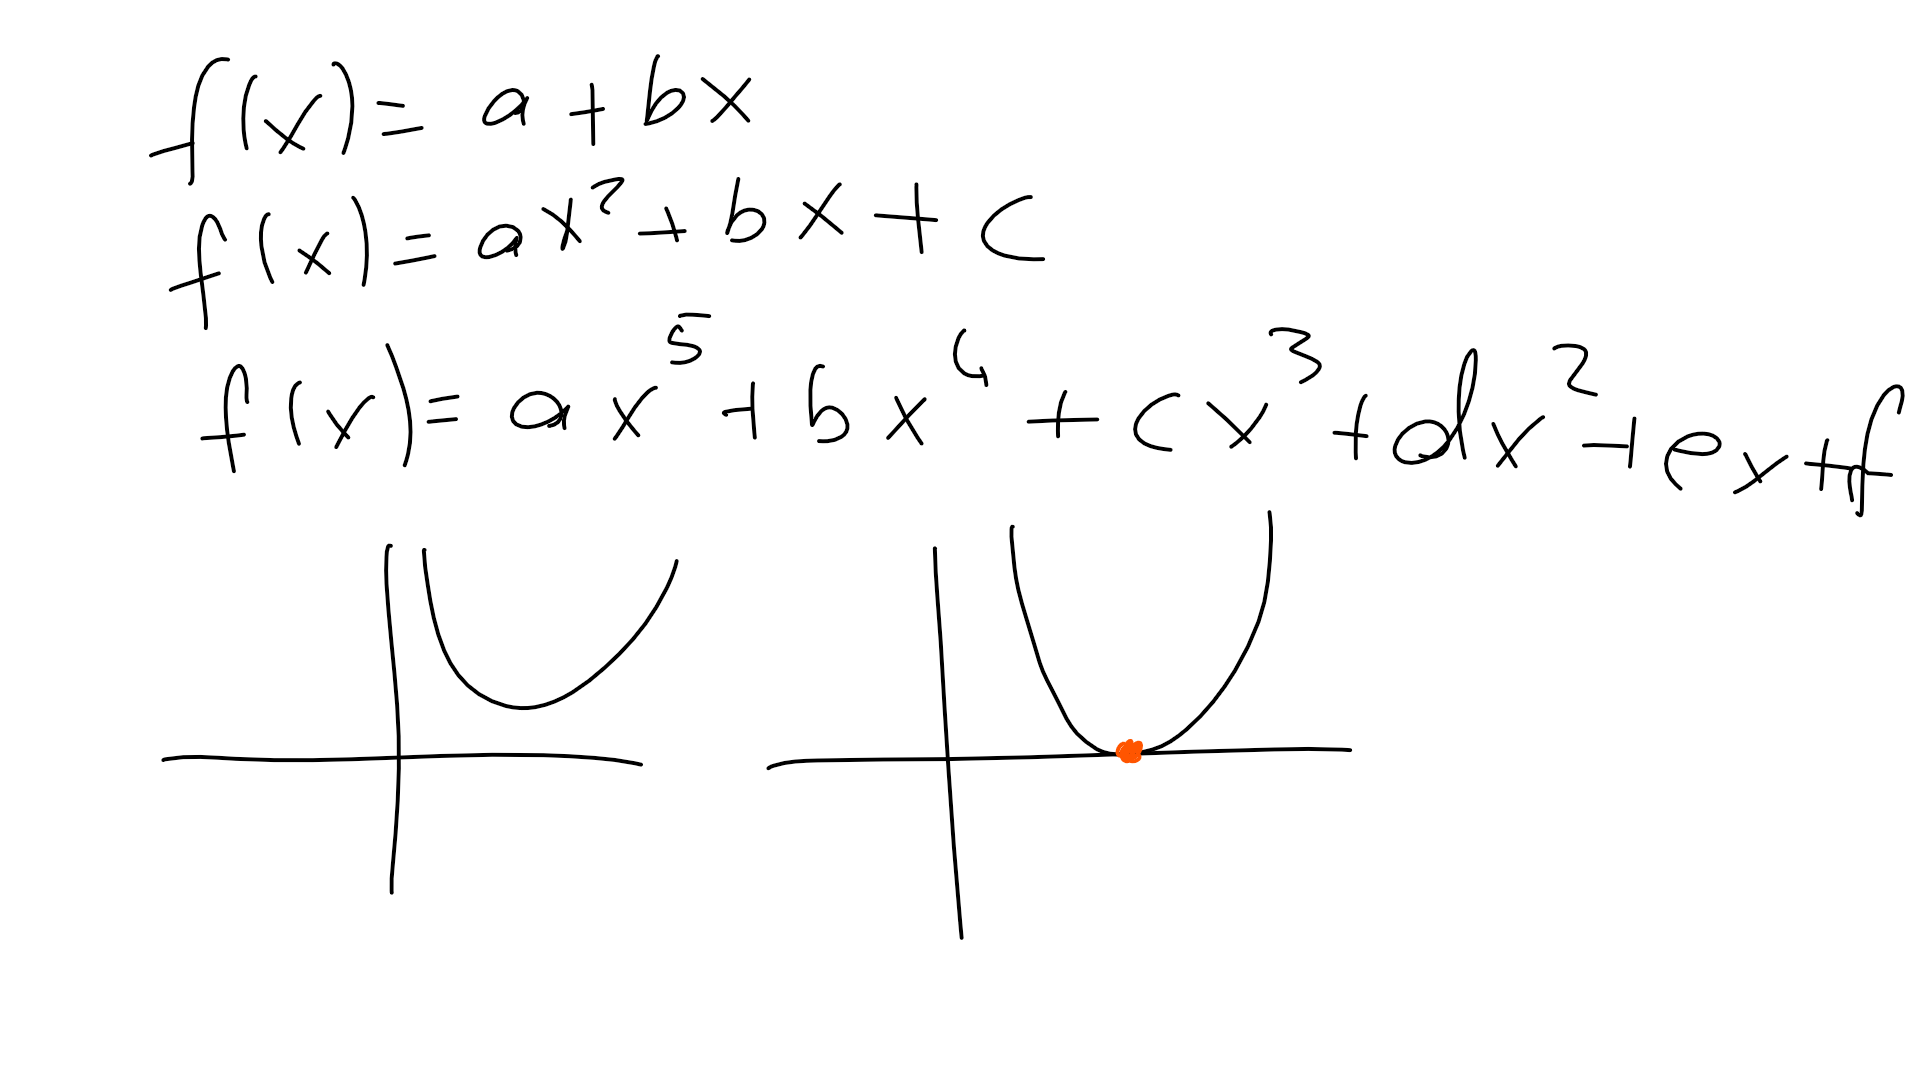 f(x) = a + bx
f(x) = ax² + bx + c
f(x) = ax⁵ + bx⁴ + cx³ + dx² + ex + f